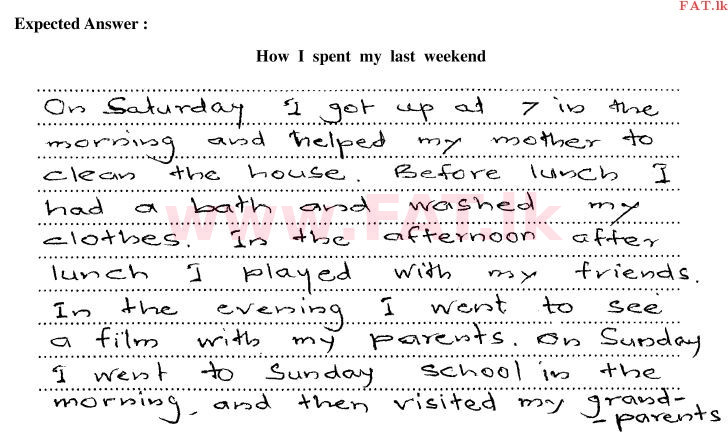 FAT.lk
Expected Answer :
How I spent my last weekend
On Saturday I got up at 7 in the
morning and helped my mother to
clean the house. Before lunch I
had a bath and washed my
clothes. In the afternoon after
lunch I played with my friends.
In the evening I went to see
a film with my parents. On Sunday
I went to Sunday school in the
morning, and then visited my grand-
-parents
www.FAT.lk